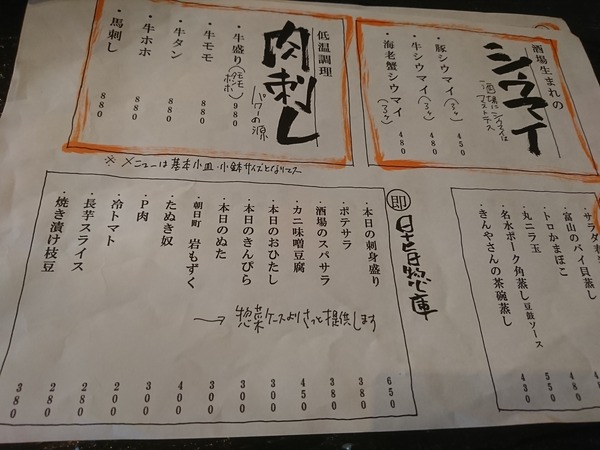 酒場生まれの
シウマイ
マストデス
・豚シウマイ(3ヶ) 450
・牛シウマイ(3ヶ) 480
・海老蟹シウマイ(3ヶ) 480
低温調理
肉刺し
パワーの源
・牛盛り(タンモモホホ) 980
・牛モモ 880
・牛タン 880
・牛ホホ 880
・馬刺し 880
※メニューは基本小皿・小鉢サイズとなります
・サラダ
・富山のバイ貝蒸し
・トロかまぼこ 480
・丸ニラ玉 550
・名水ポーク角蒸し 豆鼓ソース 430
・きんやさんの茶碗蒸し
即 日替り惣菜庫
・本日の刺身盛り 650
・ポテサラ 380
・酒場のスパサラ 380
・カニ味噌豆腐 450
・本日のおひたし 300
・本日のきんぴら 300
・本日のぬた 300
・朝日町 岩もずく 400
・たぬき奴 300
・P肉 200
・冷トマト 280
・長芋スライス 280
・焼き漬け枝豆 380
→惣菜ケースよりさっと提供します